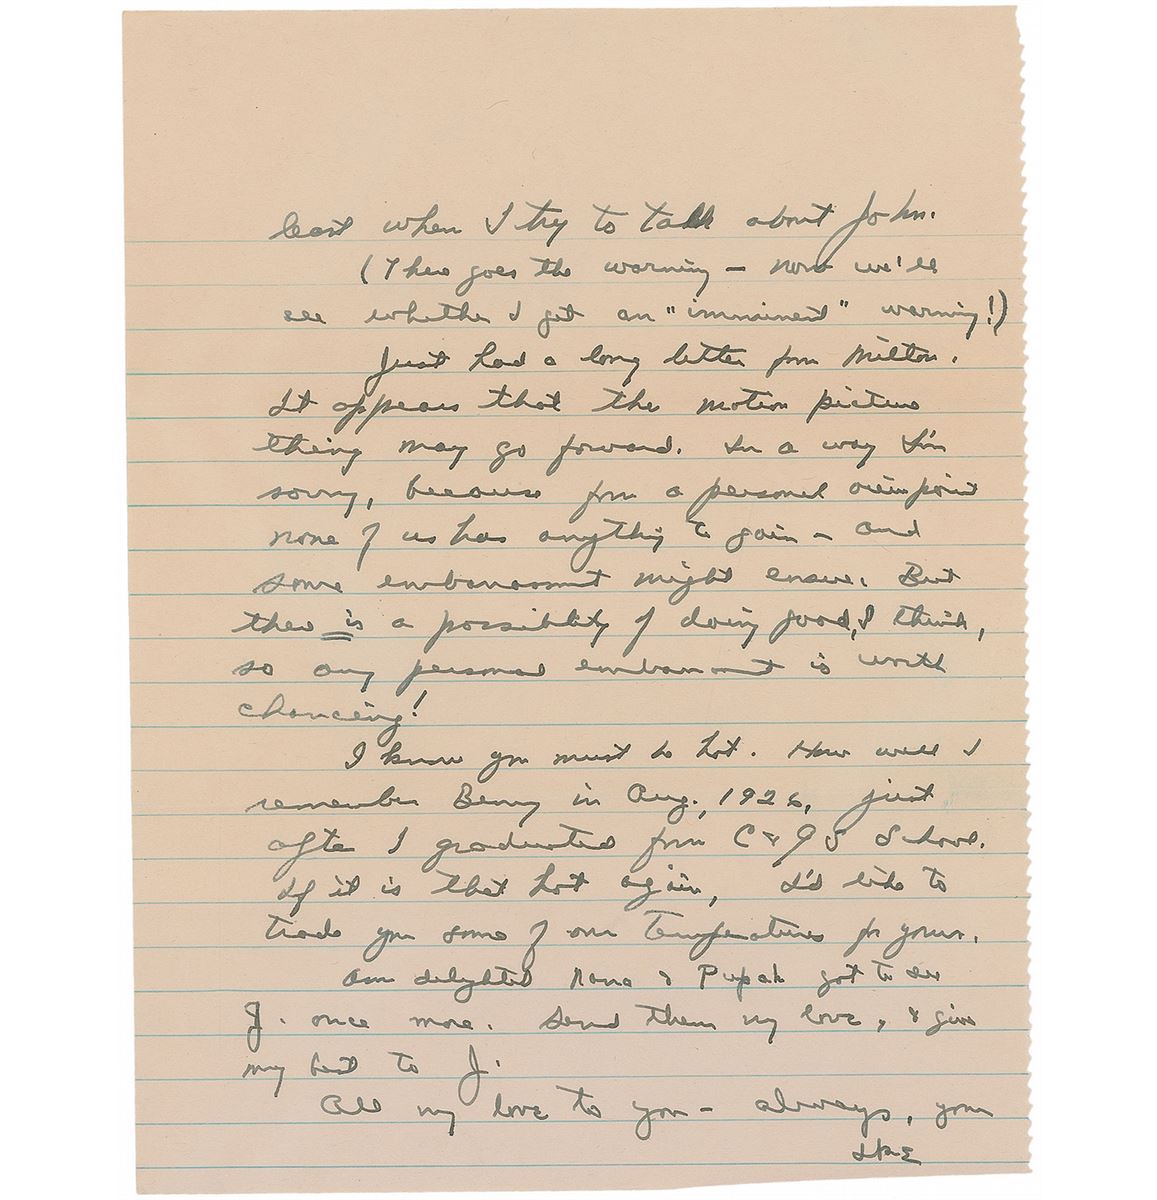 least when I try to talk about John.
(There goes the warning – now we'll
see whether I get an "imminent" warning!)
Just had a long letter from Milton.
It appears that the motion picture
thing may go forward. In a way I'm
sorry, because from a personal viewpoint
none of us has anything to gain – and
some embarrassment might ensue. But
there is a possibility of doing good, I think,
so any personal embarrassment is worth
chancing!
I know you must be hot. How well I
remember Benny in Aug., 1926, just
after I graduated from C & G S School.
If it is that hot again, I'd like to
trade you some of our temperatures for yours.
Am delighted Nana & Pupah got to see
J. once more. Send them my love, & give
my best to J.
All my love to you – always, your
Ike